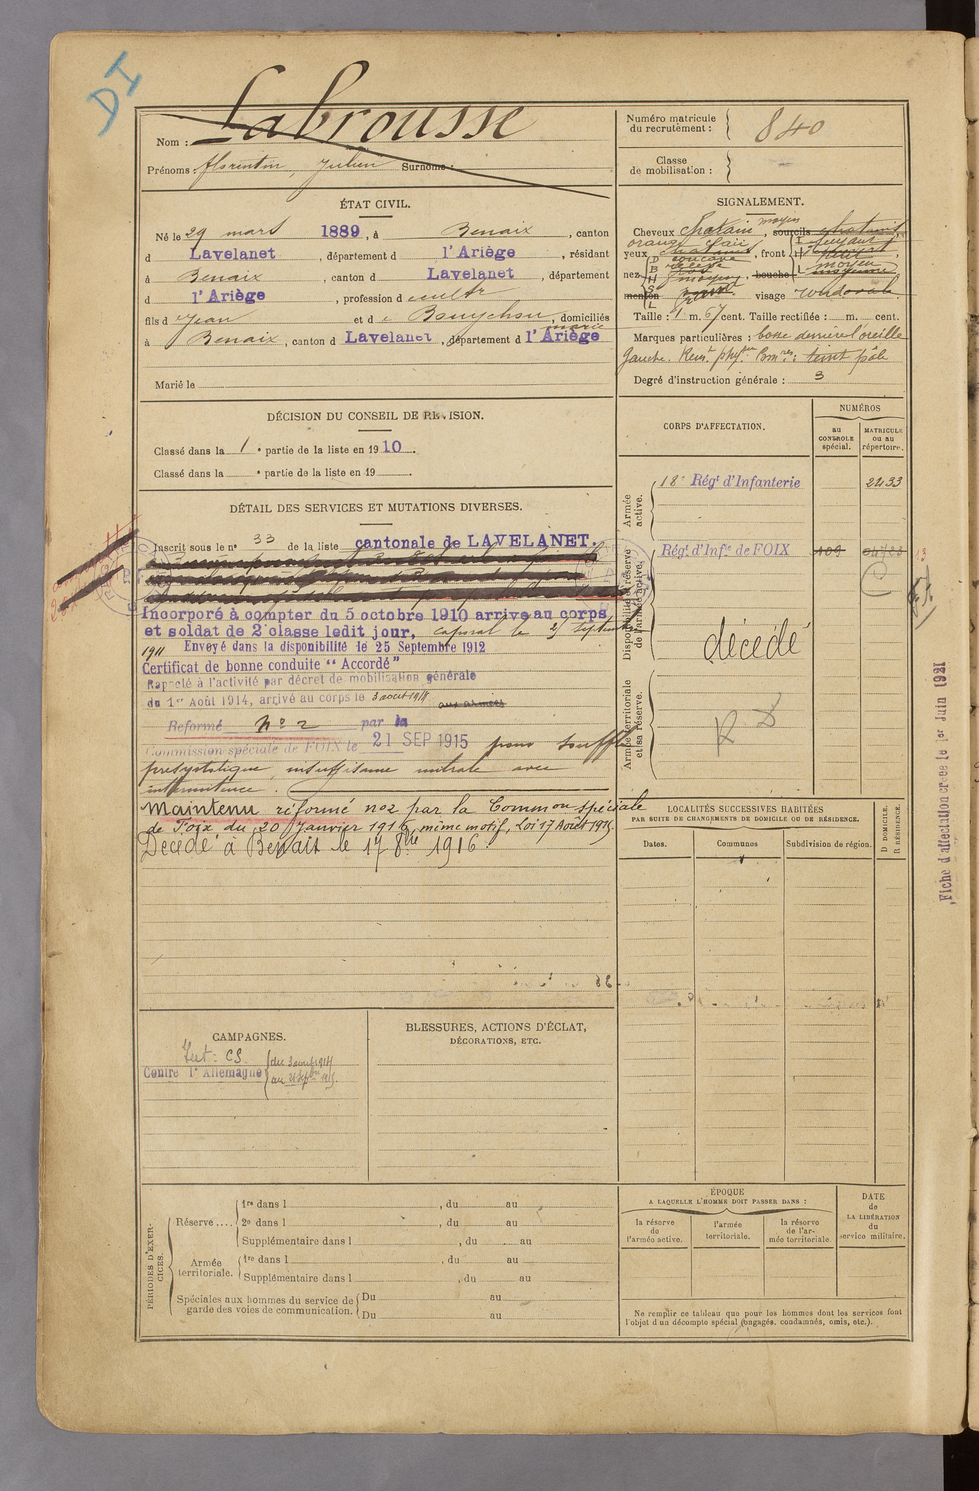 DI
Nom : Labrousse
Prénoms : Florentin, Julien Surnoms :
Numéro matricule du recrutement : 840
Classe de mobilisation : —
ÉTAT CIVIL.
Né le 29 mars 1889, à Benaix, canton
d Lavelanet, département d l'Ariège, résidant
à Benaix, canton d Lavelanet, département
d l'Ariège, profession d cultr
fils d Jean et d e Bouychou, domiciliés
à Benaix, canton d Lavelanet, département d l'Ariège
Marié le
SIGNALEMENT.
Cheveux Chatain, sourcils
yeux, front
nez, bouche
menton, visage
Taille : 1 m. 67 cent. Taille rectifiée : m. cent.
Marques particulières : bosse derrière l'oreille
gauche. teint pâle
Degré d'instruction générale : 3
DÉCISION DU CONSEIL DE RÉVISION.
Classé dans la 1 e partie de la liste en 1910.
Classé dans la e partie de la liste en 19
DÉTAIL DES SERVICES ET MUTATIONS DIVERSES.
Inscrit sous le no 33 de la liste cantonale de LAVELANET.
Incorporé à compter du 5 octobre 1910 arrivé au corps
et soldat de 2e classe ledit jour, caporal le 25 septembre
1911 Envoyé dans la disponibilité le 25 Septembre 1912
Certificat de bonne conduite "Accordé"
Rappelé à l'activité par décret de mobilisation générale
du 1er Août 1914, arrivé au corps le 3 août 1914 aux armées
Réformé No 2 par la
Commission spéciale de FOIX le 21 SEP 1915 pour souffle
présystolique, insuffisance mitrale avec
intermittence.
Maintenu réformé no 2 par la Common spéciale
de Foix du 20 Janvier 1916, même motif, Loi 17 Août 1915.
Décédé à Benaix le 17 8bre 1916.
CORPS D'AFFECTATION.
NUMÉROS
au CONTROLE spécial.
MATRICULE ou au répertoire.
Armée active.
18e Régt d'Infanterie 2233
Disponibilité et réserve de l'armée active.
Régt d'Infie de FOIX 109
décédé
Armée territoriale et sa réserve.
R D
Fiche d'affectation créée le 1er Juin 1921
LOCALITÉS SUCCESSIVES HABITÉES
PAR SUITE DE CHANGEMENTS DE DOMICILE OU DE RÉSIDENCE.
Dates. Communes Subdivision de région. D DOMICILE. R RÉSIDENCE.
CAMPAGNES.
Int : CS
Contre l'Allemagne du 3 août 1914
au 21 Sepbre 1915.
BLESSURES, ACTIONS D'ÉCLAT,
DÉCORATIONS, ETC.
PÉRIODES D'EXERCICES.
Réserve .... 1re dans l , du au
2e dans l , du au
Supplémentaire dans l , du au
Armée territoriale. 1re dans l , du au
Supplémentaire dans l , du au
Spéciales aux hommes du service de garde des voies de communication. Du au
Du au
ÉPOQUE
A LAQUELLE L'HOMME DOIT PASSER DANS :
la réserve de l'armée active.
l'armée territoriale.
la réserve de l'armée territoriale.
DATE de LA LIBÉRATION du service militaire.
Ne remplir ce tableau que pour les hommes dont les services font
l'objet d'un décompte spécial (engagés, condamnés, omis, etc.).